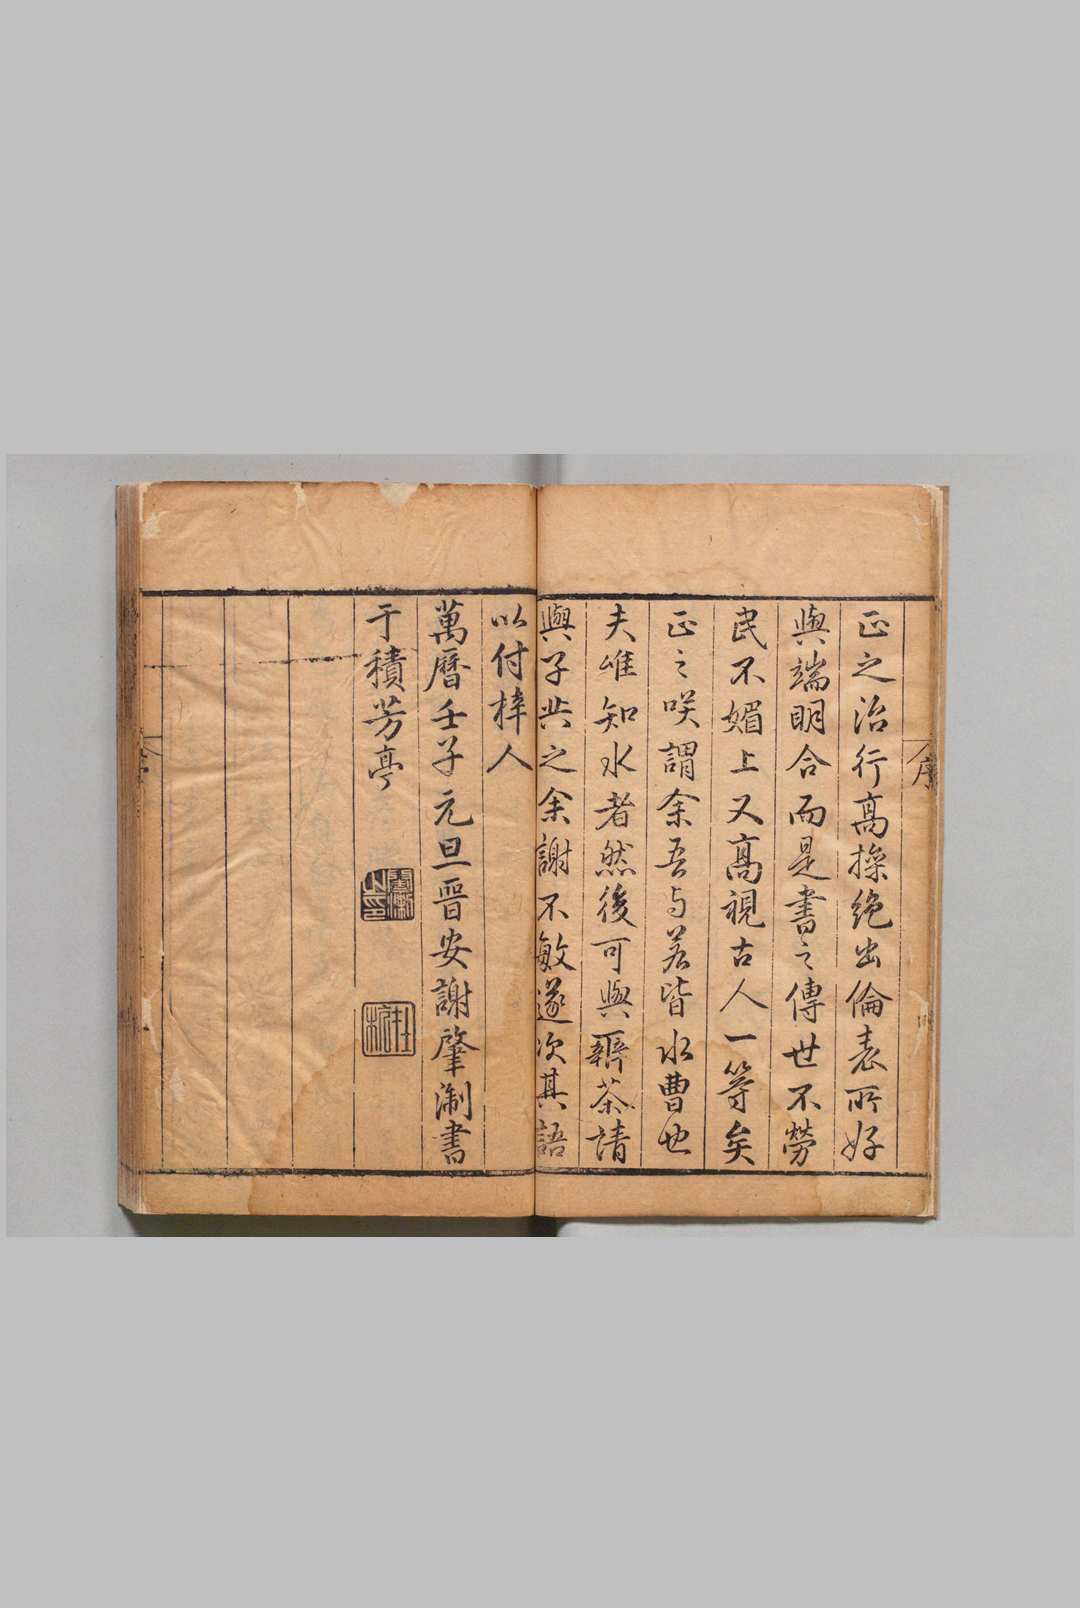 序
正之治行高操絶出倫表所好
與端明合而是書之傳世不勞
民不媚上又高視古人一等矣
正之咲謂余吾与若皆水曹也
夫唯知水者然後可與辯茶請
與子共之余謝不敏遂次其語
以付梓人
萬曆壬子元旦晉安謝肇淛書
于積芳亭